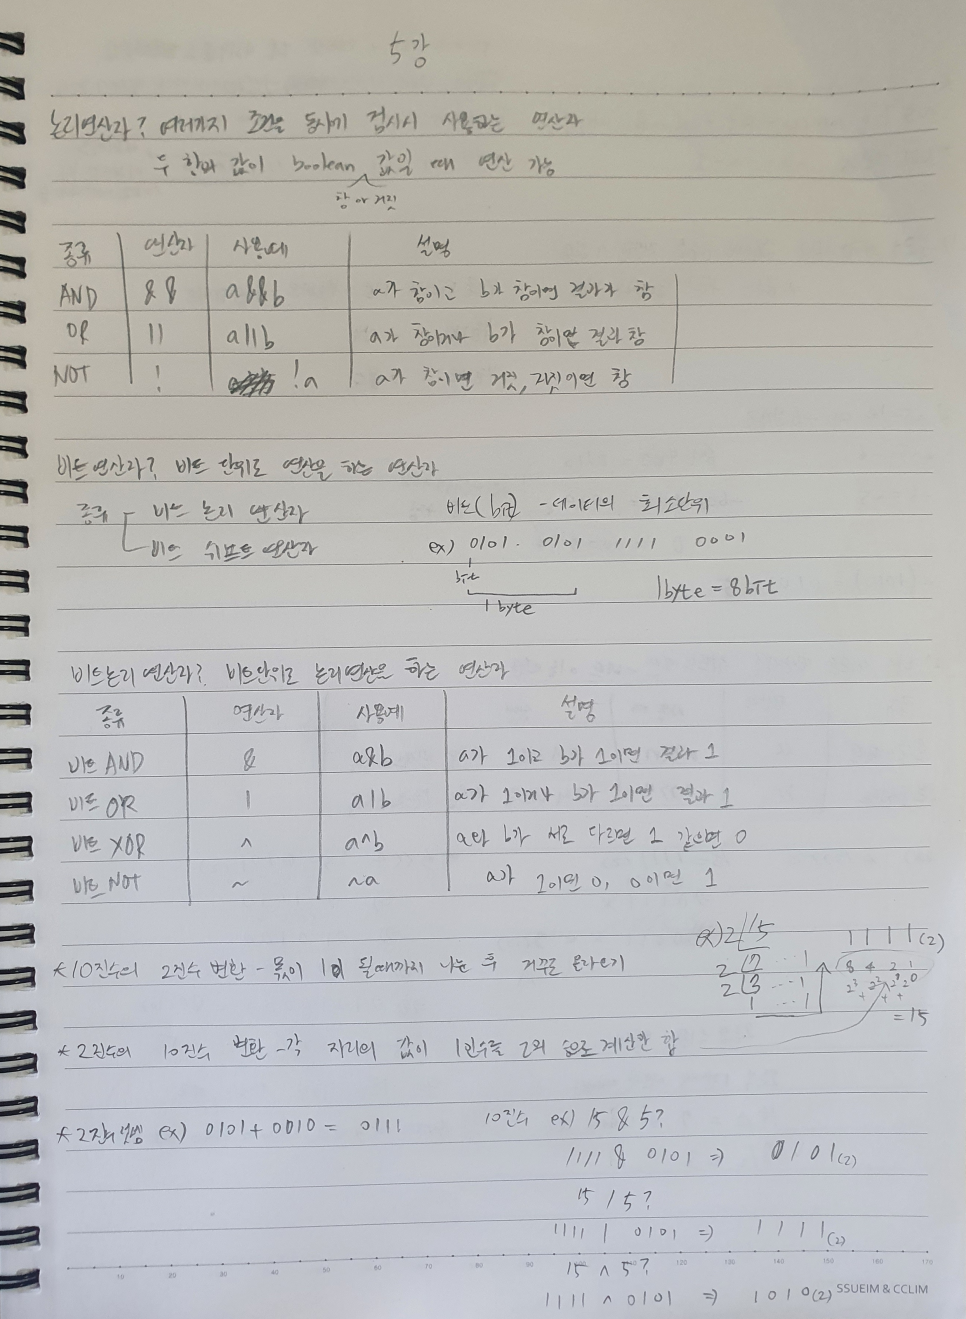 5강
논리연산자? 여러가지 조건을 동시에 검시시 사용하는 연산자
두 항의 값이 boolean 값일 때 연산 가능
참 or 거짓
종류 연산자 사용예 설명
AND && a&&b a가 참이고 b가 참이면 결과가 참
OR || a||b a가 참이거나 b가 참이면 결과 참
NOT ! !a a가 참이면 거짓, 거짓이면 참
비트연산자? 비트 단위로 연산을 하는 연산자
종류 비트 논리 연산자 비트(bit) - 데이터의 최소단위
비트 쉬프트 연산자 ex) 0101 0101 1111 0001
bit
1byte 1byte = 8bit
비트논리 연산자? 비트단위로 논리연산을 하는 연산자
종류 연산자 사용예 설명
비트 AND & a&b a가 1이고 b가 1이면 결과 1
비트 OR | a|b a가 1이거나 b가 1이면 결과 1
비트 XOR ^ a^b a와 b가 서로 다르면 1 같으면 0
비트 NOT ~ ~a a가 1이면 0, 0이면 1
ex) 2 15 1111(2)
*10진수의 2진수 변환 - 몫이 1이 될때까지 나눈 후 거꾸로 올라오기 2 7 ...1 8 4 2 1
2 3 ...1 2³ 2² 2¹ 2⁰
1 ...1 + + +
= 15
*2진수의 10진수 변환 - 각 자리의 값이 1인수를 2의 승으로 계산한 합
*2진수 덧셈 ex) 0101 + 0010 = 0111 10진수 ex) 15 & 5?
1111 & 0101 => 0101(2)
15 | 5?
1111 | 0101 => 1111(2)
15 ^ 5?
1111 ^ 0101 => 1010(2)
10 20 30 40 50 60 70 80 90 100 110 120 130 140 150 160 170
SSUEIM & CCLIM